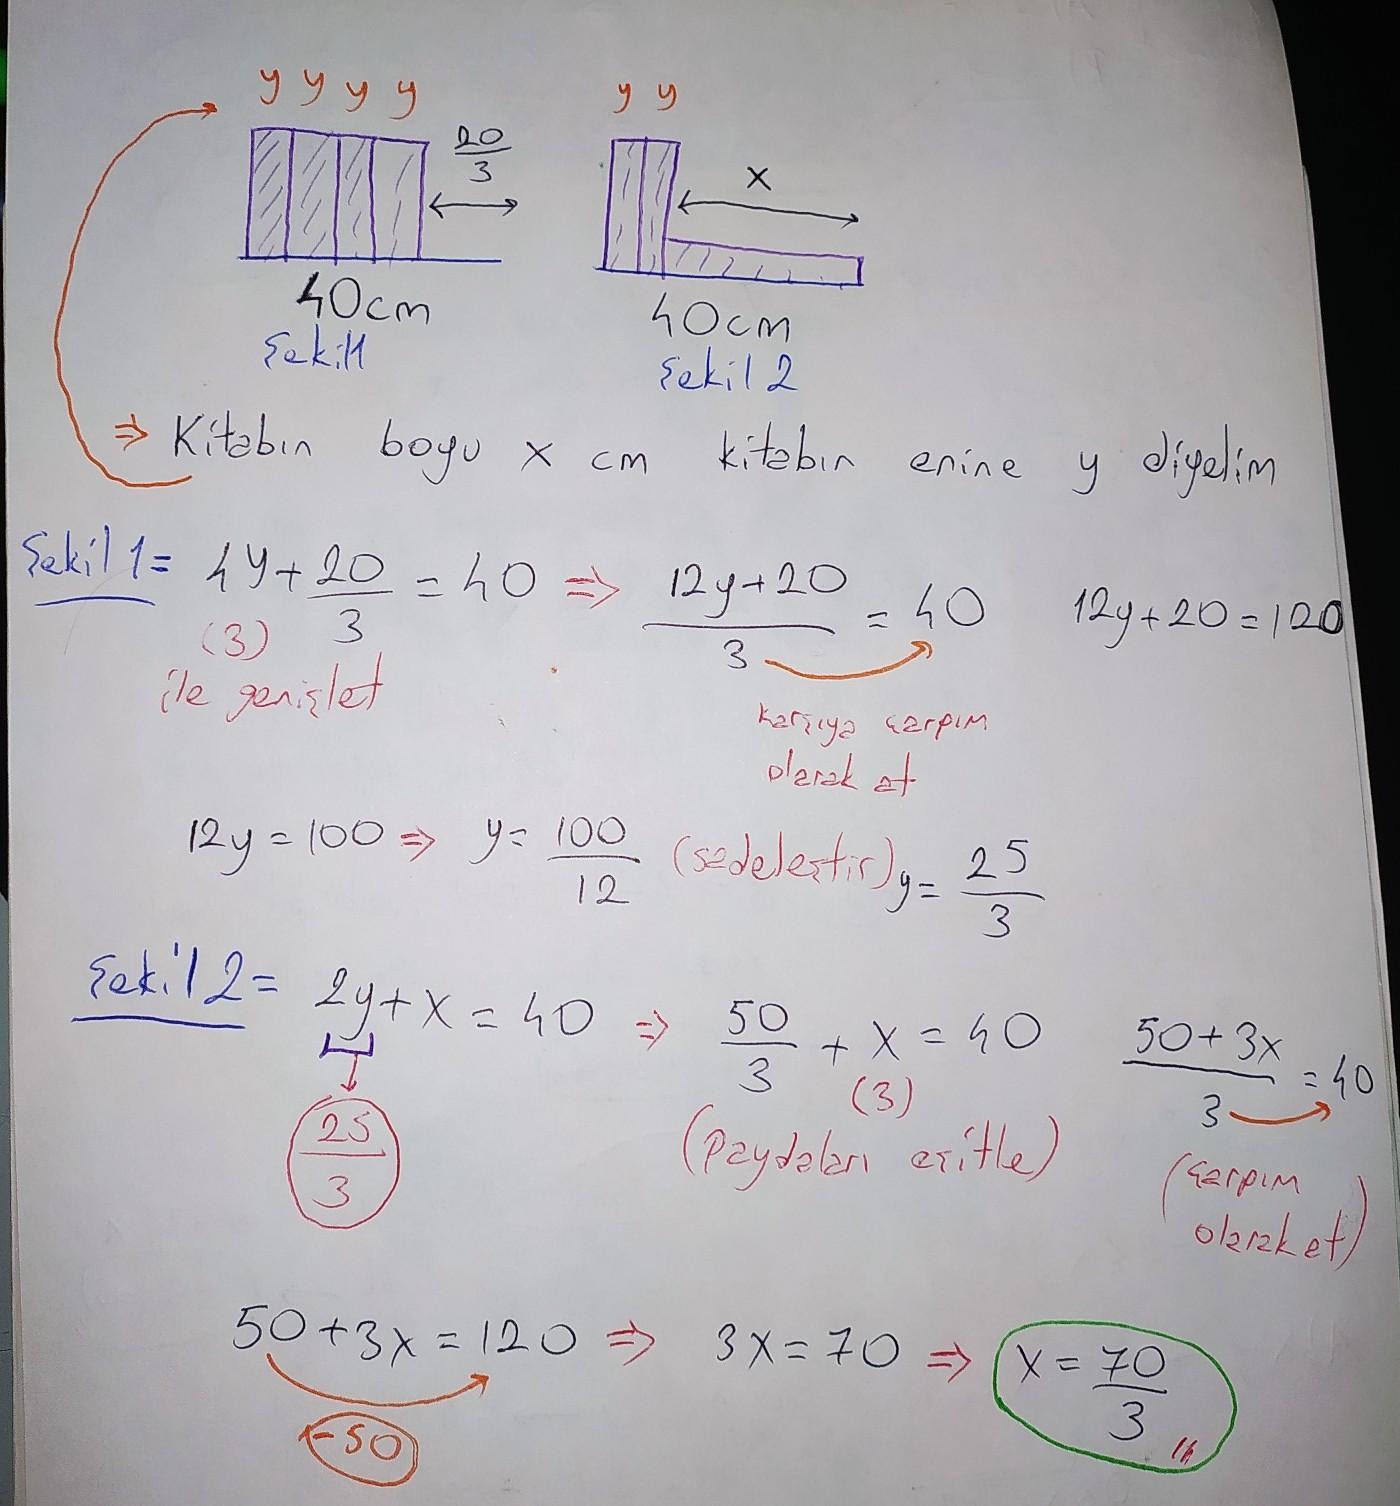 y y y y
y y
20/3
x
40cm
40cm
Şekil 1
Şekil 2
⇒ Kitabın boyu x cm kitabın enine y diyelim
Şekil 1 = 4y + 20/3 = 40 ⇒ (12y+20)/3 = 40 12y+20=120
(3)
ile genişlet
karşıya çarpım
olarak at
12y = 100 ⇒ y = 100/12 (sadeleştir) y = 25/3
Şekil 2 = 2y + x = 40 ⇒ 50/3 + x = 40 (50+3x)/3 = 40
(3)
25/3
(Paydaları eşitle)
(çarpım
olarak at)
50+3x=120 ⇒ 3x=70 ⇒ x = 70/3 //
-50